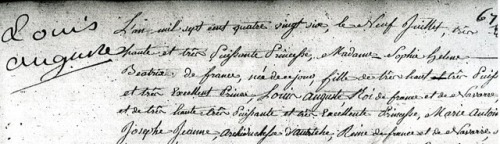 Louis
auguste
67
L'an mil sept cent quatre vingt six, le Neuf Juillet, très
haute et très Puissante Princesse, Madame Sophie Helene
Beatrix de france, née ce jour, fille de très haut et très Puissant
et très Excellent Prince, Louis Auguste Roi de france et de Navarre
et de très haute très Puissante et très Excellente Princesse, Marie Antoinette
Josephe Jeanne, archiduchesse d'autriche, Reine de france et de Navarre,